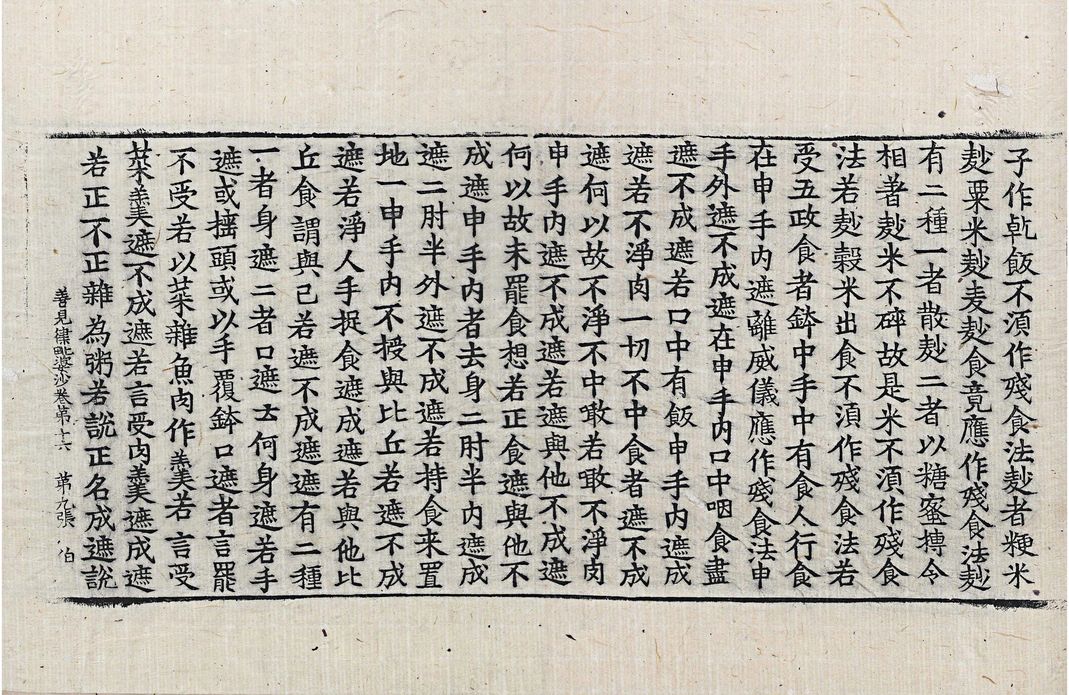 子作乹飯不湏作殘食法麨者粳米
麨粟米麨麦麨食竟應作殘食法麨
有二種一者散麨二者以糖蜜摶令
相著麨米不碎故是米不湏作殘食
法若麨穀米出食不湏作殘食法若
受五政食者鉢中手中有食人行食
在申手內遮離威儀應作殘食法申
手外遮不成遮在申手內口中咽食盡
遮不成遮若口中有飯申手內遮成
遮若不淨肉一切不中食者遮不成
遮何以故不淨不中噉若噉不淨肉
申手內遮不成遮若遮與他不成遮
何以故未罷食想若正食遮與他不
成遮申手內者去身二肘半內遮成
遮二肘半外遮不成遮若持食来置
地一申手內不授與比丘若遮不成
遮若淨人手捉食遮成遮若與他比
丘食謂與己若遮不成遮遮有二種
一者身遮二者口遮云何身遮若手
遮或揺頭或以手覆鉢口遮者言罷
不受若以菜雜魚肉作羹若言受
菜羹遮不成遮若言受肉羹遮成遮
若正不正雜為粥若說正名成遮說
善見律毗婆沙卷第十六 第九張 伯